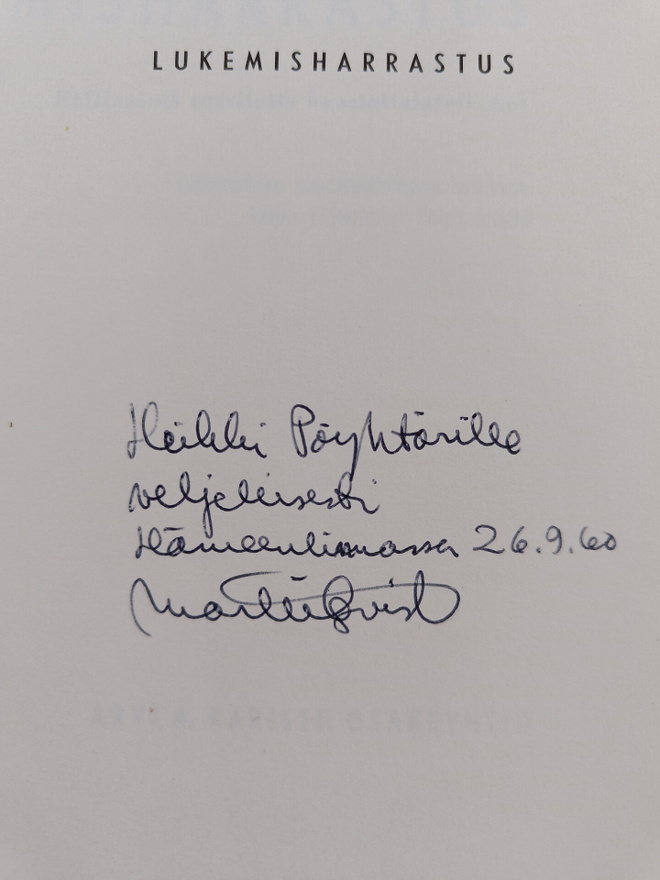 LUKEMISHARRASTUS
Heikki Pöyhtärille
veljellisesti
Hämeenlinnassa 26.9.60
Martti Qvist